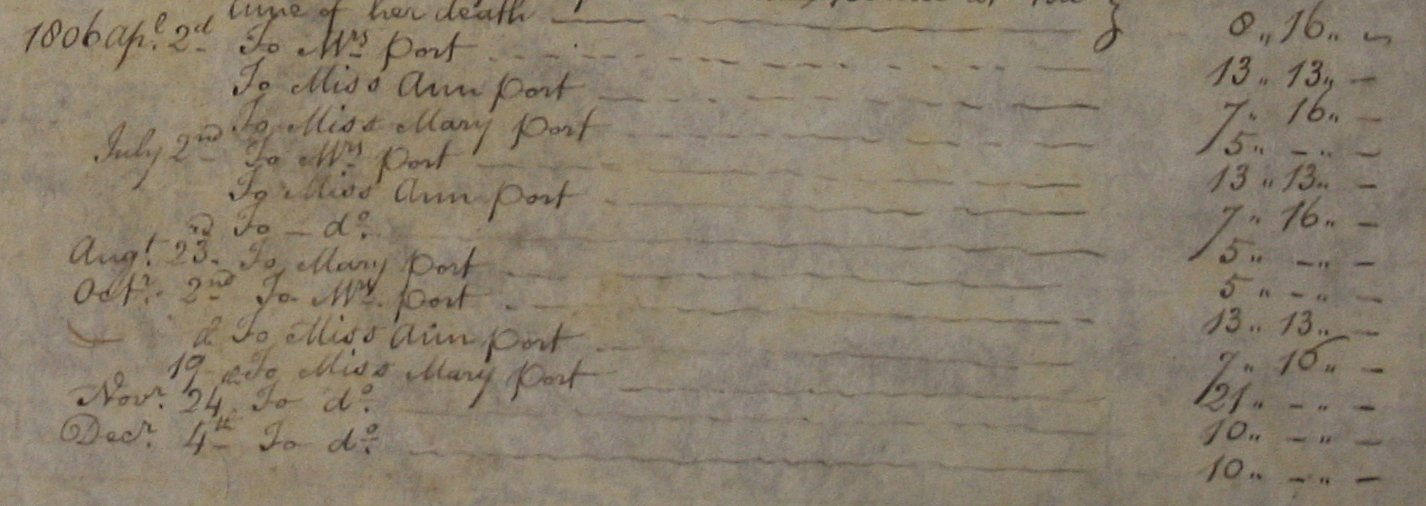 time of her death 8 ,, 16 ,, –
1806 Apl. 2d To Mrs Port 13 ,, 13 ,, –
To Miss Ann Port 7 ,, 16 ,, –
To Miss Mary Port 5 ,, – ,, –
July 2nd To Mrs Port 13 ,, 13 ,, –
To Miss Ann Port 7 ,, 16 ,, –
To – do. 5 ,, – ,, –
Augt. 23rd To Mary Port 5 ,, – ,, –
Octr. 2nd To Mrs. Port 13 ,, 13 ,, –
d To Miss Ann Port 7 ,, 16 ,, –
19 To Miss Mary Port 21 ,, – ,, –
Novr. 24 To do. 10 ,, – ,, –
Decr. 4th To do. 10 ,, – ,, –